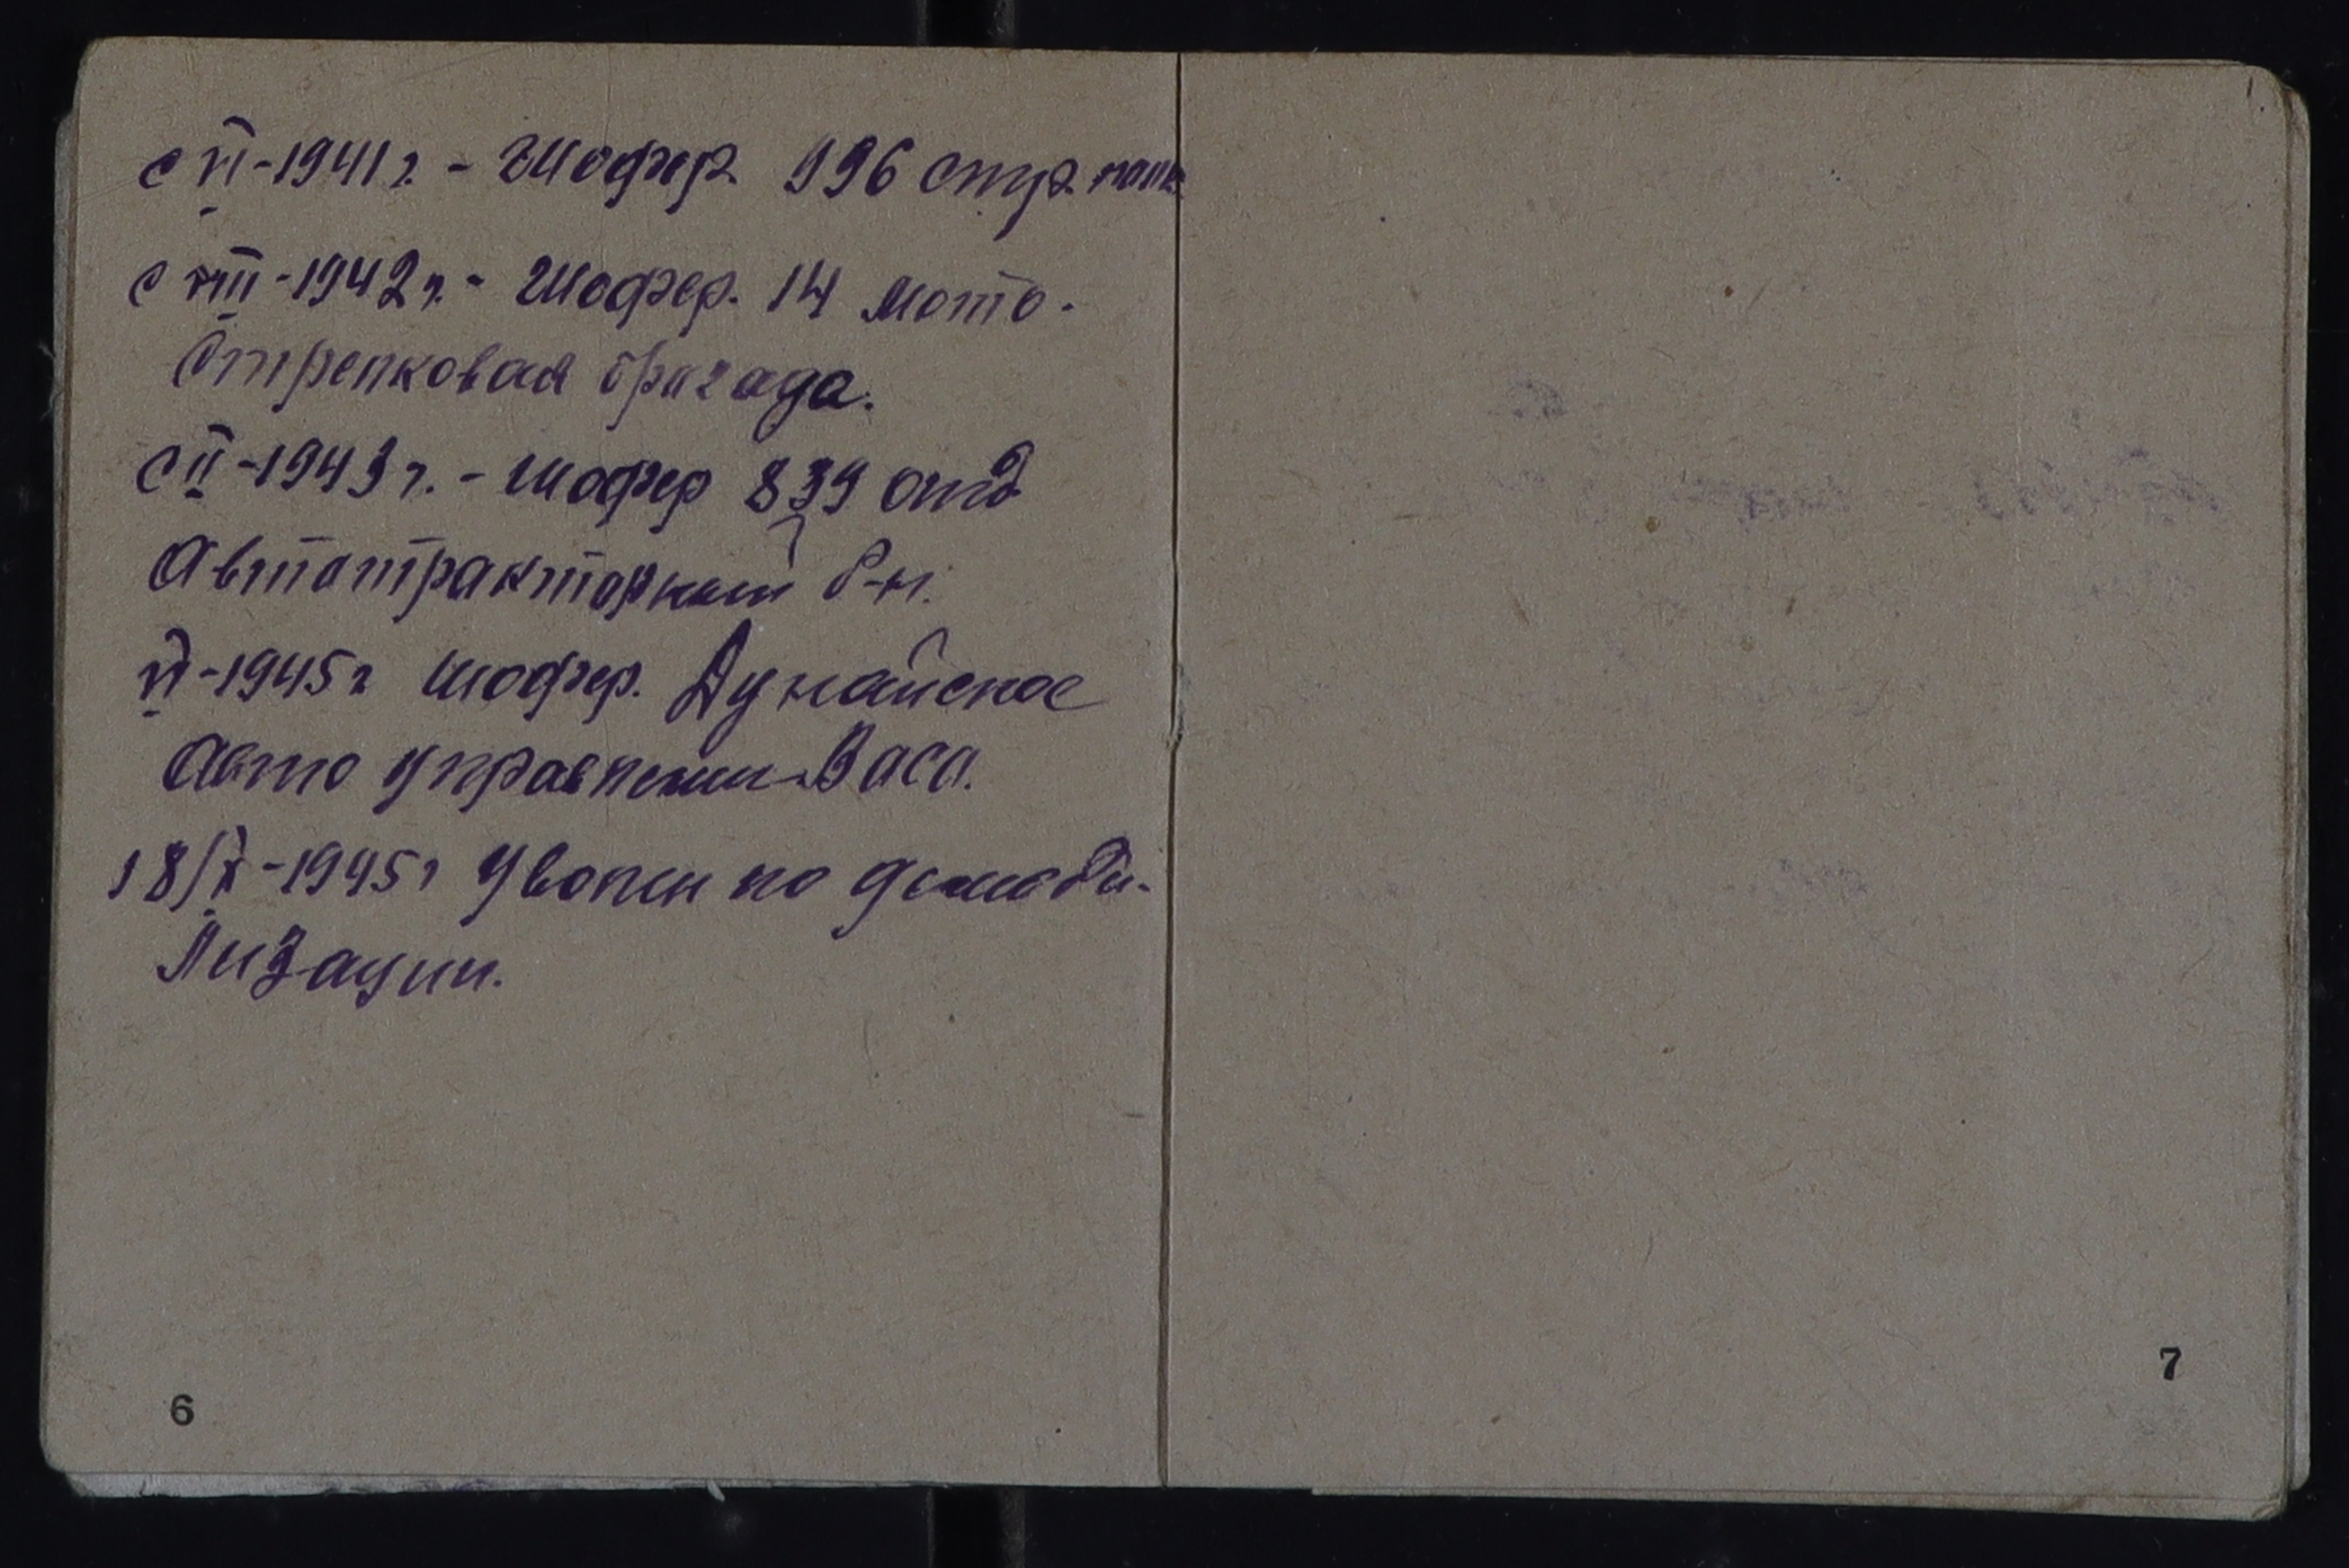 с VI-1941 г. - Шофер. 996 стр. полк
с VIII-1942 г. - Шофер. 14 Мото-
Стрелковая бригада.
с II-1943 г. - шофер 839 отд
Автотракторный б-н.
VI-1945 г шофер. Дунайское
Авто управлении Васо.
18/X-1945 г Уволен по демоби-
Лизации.
6
7